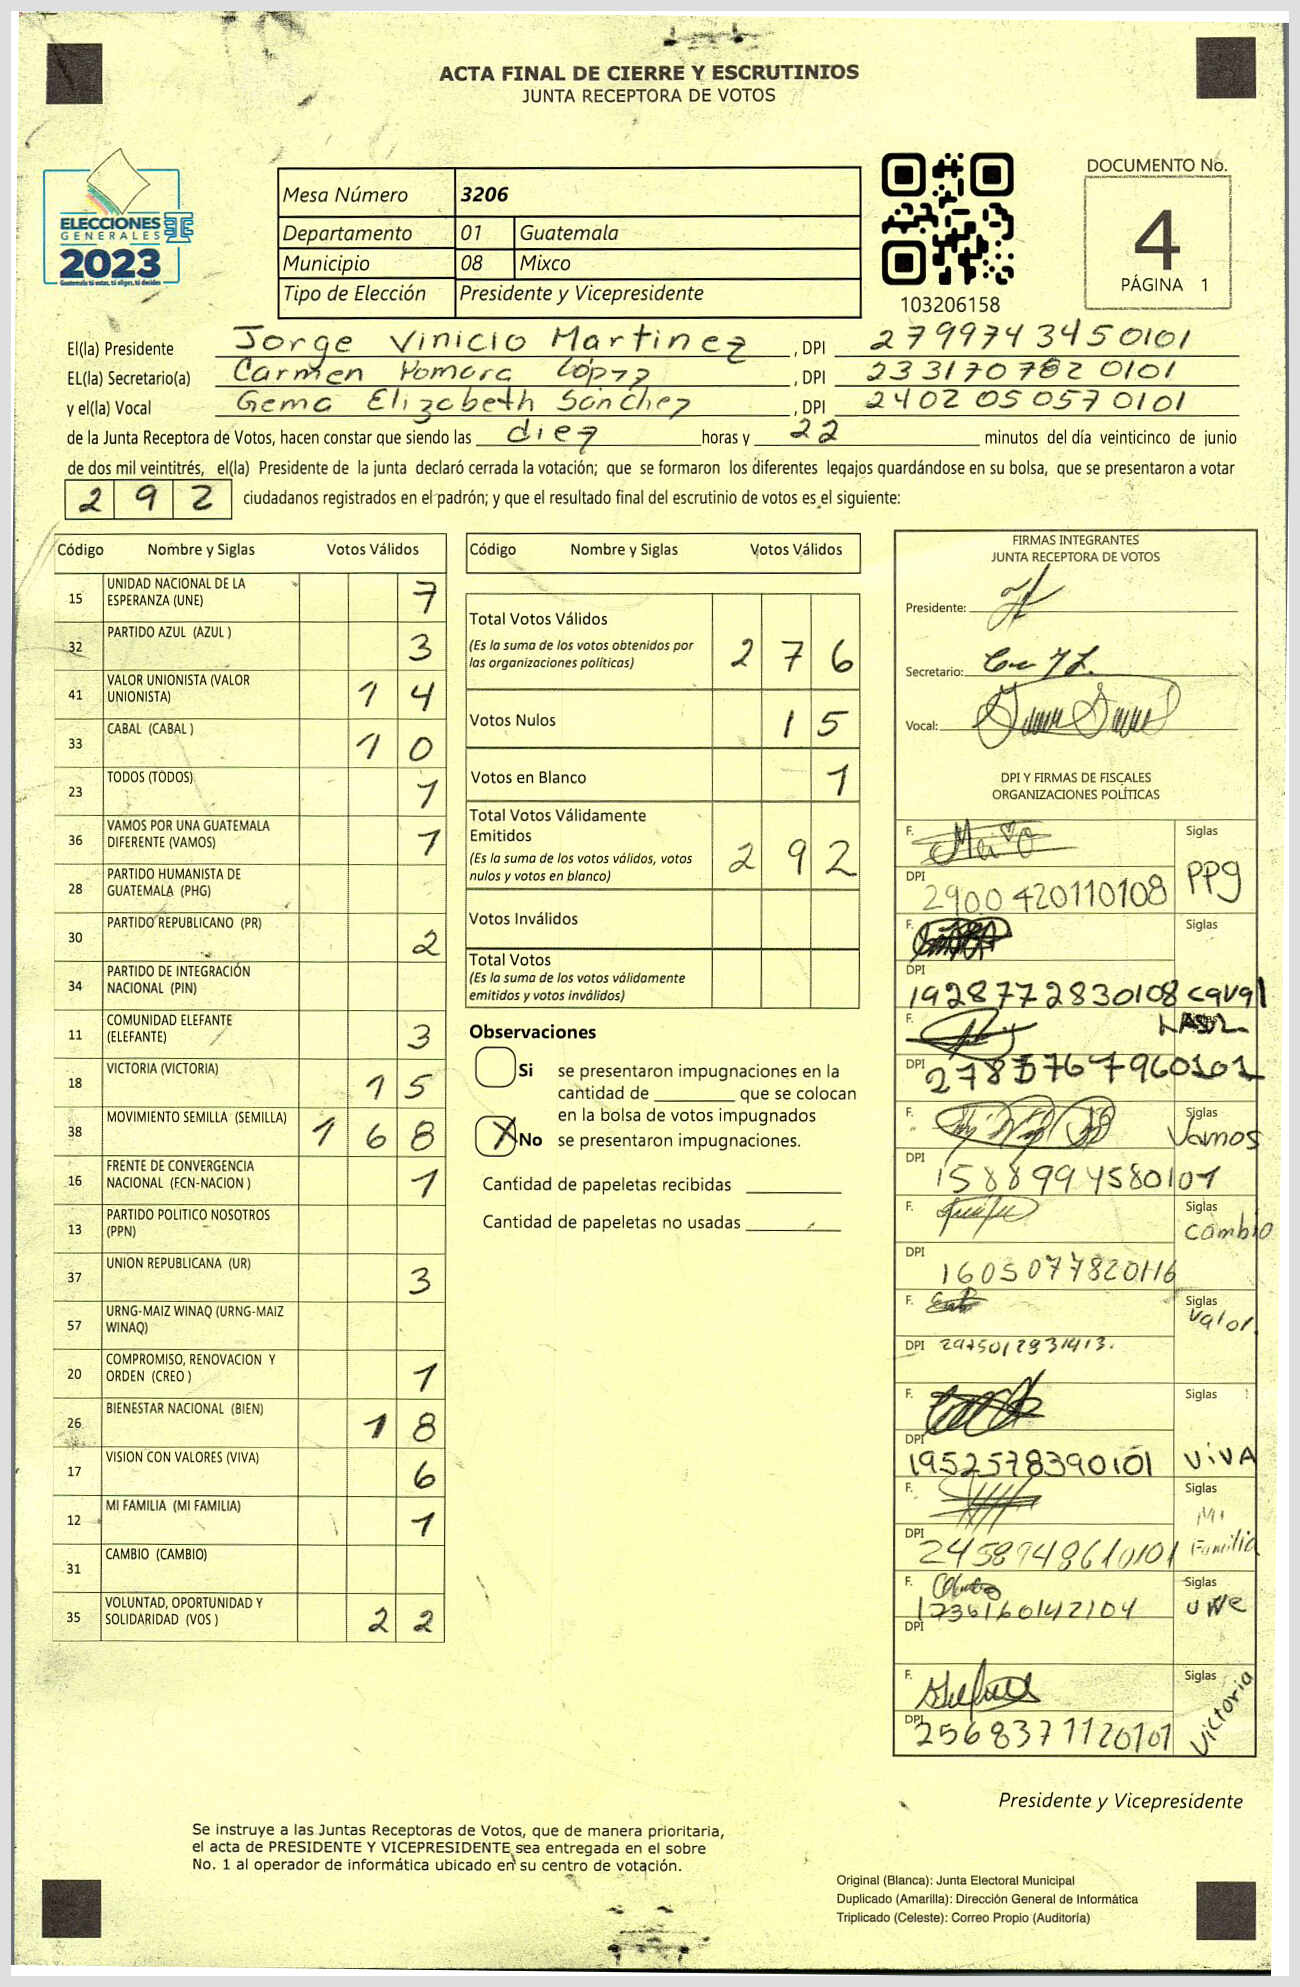 ACTA FINAL DE CIERRE Y ESCRUTINIOS
JUNTA RECEPTORA DE VOTOS
ELECCIONES
GENERALES
2023
Guatemala tú votas, tú eliges, tú decides
Mesa Número 3206
Departamento 01 Guatemala
Municipio 08 Mixco
Tipo de Elección Presidente y Vicepresidente
103206158
DOCUMENTO No.
4
PÁGINA 1
El(la) Presidente Jorge Vinicio Martinez, DPI 2799743450101
EL(la) Secretario(a) Carmen Pomara López, DPI 2331707820101
y el(la) Vocal Gema Elizabeth Sánchez, DPI 2402050570101
de la Junta Receptora de Votos, hacen constar que siendo las diez horas y 22 minutos del día veinticinco de junio
de dos mil veintitrés, el(la) Presidente de la junta declaró cerrada la votación; que se formaron los diferentes legajos guardándose en su bolsa, que se presentaron a votar
292 ciudadanos registrados en el padrón; y que el resultado final del escrutinio de votos es el siguiente:
Código Nombre y Siglas Votos Válidos
15 UNIDAD NACIONAL DE LA ESPERANZA (UNE) 7
32 PARTIDO AZUL (AZUL ) 3
41 VALOR UNIONISTA (VALOR UNIONISTA) 14
33 CABAL (CABAL ) 10
23 TODOS (TODOS) 1
36 VAMOS POR UNA GUATEMALA DIFERENTE (VAMOS) 1
28 PARTIDO HUMANISTA DE GUATEMALA (PHG)
30 PARTIDO REPUBLICANO (PR) 2
34 PARTIDO DE INTEGRACIÓN NACIONAL (PIN)
11 COMUNIDAD ELEFANTE (ELEFANTE) 3
18 VICTORIA (VICTORIA) 15
38 MOVIMIENTO SEMILLA (SEMILLA) 168
16 FRENTE DE CONVERGENCIA NACIONAL (FCN-NACION ) 1
13 PARTIDO POLITICO NOSOTROS (PPN)
37 UNION REPUBLICANA (UR) 3
57 URNG-MAIZ WINAQ (URNG-MAIZ WINAQ)
20 COMPROMISO, RENOVACION Y ORDEN (CREO ) 1
26 BIENESTAR NACIONAL (BIEN) 18
17 VISION CON VALORES (VIVA) 6
12 MI FAMILIA (MI FAMILIA) 1
31 CAMBIO (CAMBIO)
35 VOLUNTAD, OPORTUNIDAD Y SOLIDARIDAD (VOS ) 22
Código Nombre y Siglas Votos Válidos
Total Votos Válidos 276
(Es la suma de los votos obtenidos por
las organizaciones políticas)
Votos Nulos 15
Votos en Blanco 1
Total Votos Válidamente
Emitidos 292
(Es la suma de los votos válidos, votos
nulos y votos en blanco)
Votos Inválidos
Total Votos
(Es la suma de los votos válidamente
emitidos y votos inválidos)
Observaciones
Si se presentaron impugnaciones en la
cantidad de ________ que se colocan
en la bolsa de votos impugnados
X No se presentaron impugnaciones.
Cantidad de papeletas recibidas
Cantidad de papeletas no usadas
FIRMAS INTEGRANTES
JUNTA RECEPTORA DE VOTOS
Presidente:
Secretario:
Vocal:
DPI Y FIRMAS DE FISCALES
ORGANIZACIONES POLÍTICAS
F. Siglas
DPI 2900420110108 PPG
F. Siglas
DPI 1928772830108 caval
F. Siglas
DPI
F. Siglas
Vamos
DPI 1588994580101
F. Siglas
Cambio
DPI 1605077820116
F. Siglas
Valor
DPI
F. Siglas
DPI 1952578390101 ViVA
F. Siglas
Mi
DPI 2458948610101 Familia
F. Siglas
1736160142104 UNe
DPI
F. Siglas
DPI 2568371120101 Victoria
Presidente y Vicepresidente
Se instruye a las Juntas Receptoras de Votos, que de manera prioritaria,
el acta de PRESIDENTE Y VICEPRESIDENTE sea entregada en el sobre
No. 1 al operador de informática ubicado en su centro de votación.
Original (Blanca): Junta Electoral Municipal
Duplicado (Amarilla): Dirección General de Informática
Triplicado (Celeste): Correo Propio (Auditoría)